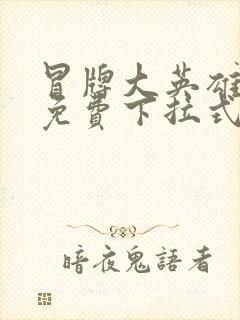 冒牌大英雄
免費下拉式
暗夜鬼語者